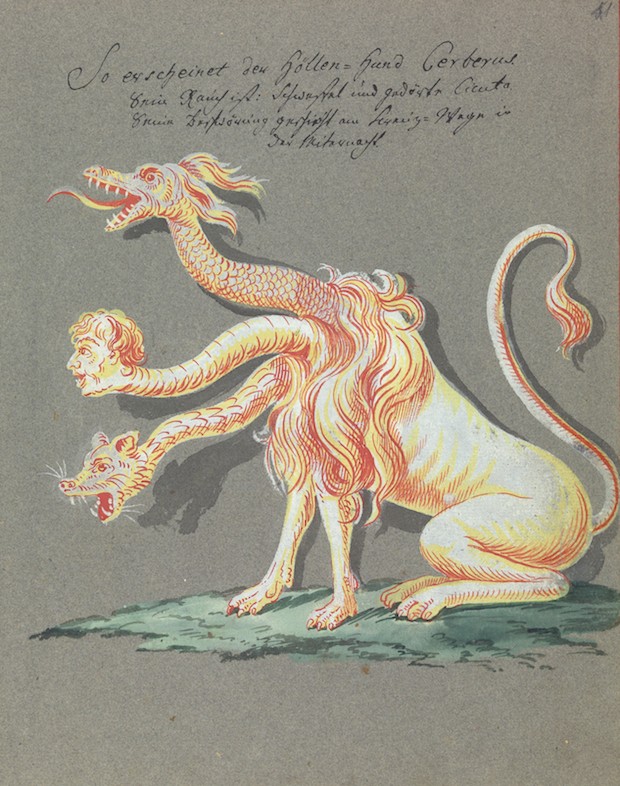 41
So erscheinet der Höllen=Hund Cerberus
Sein Rauch ist: Schweffel und gedörte Cicuta
Seine Beschwörung geschieht am Kreuz=Wege in
der Miternacht